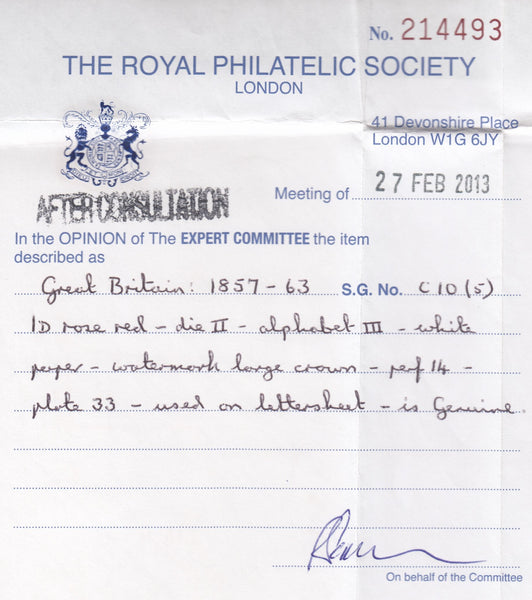 No. 214493
THE ROYAL PHILATELIC SOCIETY
LONDON
41 Devonshire Place
London W1G 6JY
Meeting of 27 FEB 2013
AFTER CONSULTATION
In the OPINION of The EXPERT COMMITTEE the item
described as
Great Britain: 1857-63 S.G. No. C10(5)
1D rose red - die II - alphabet III - white
paper - watermark large crown - perf 14 -
plate 33 - used on lettersheet - is Genuine.
On behalf of the Committee